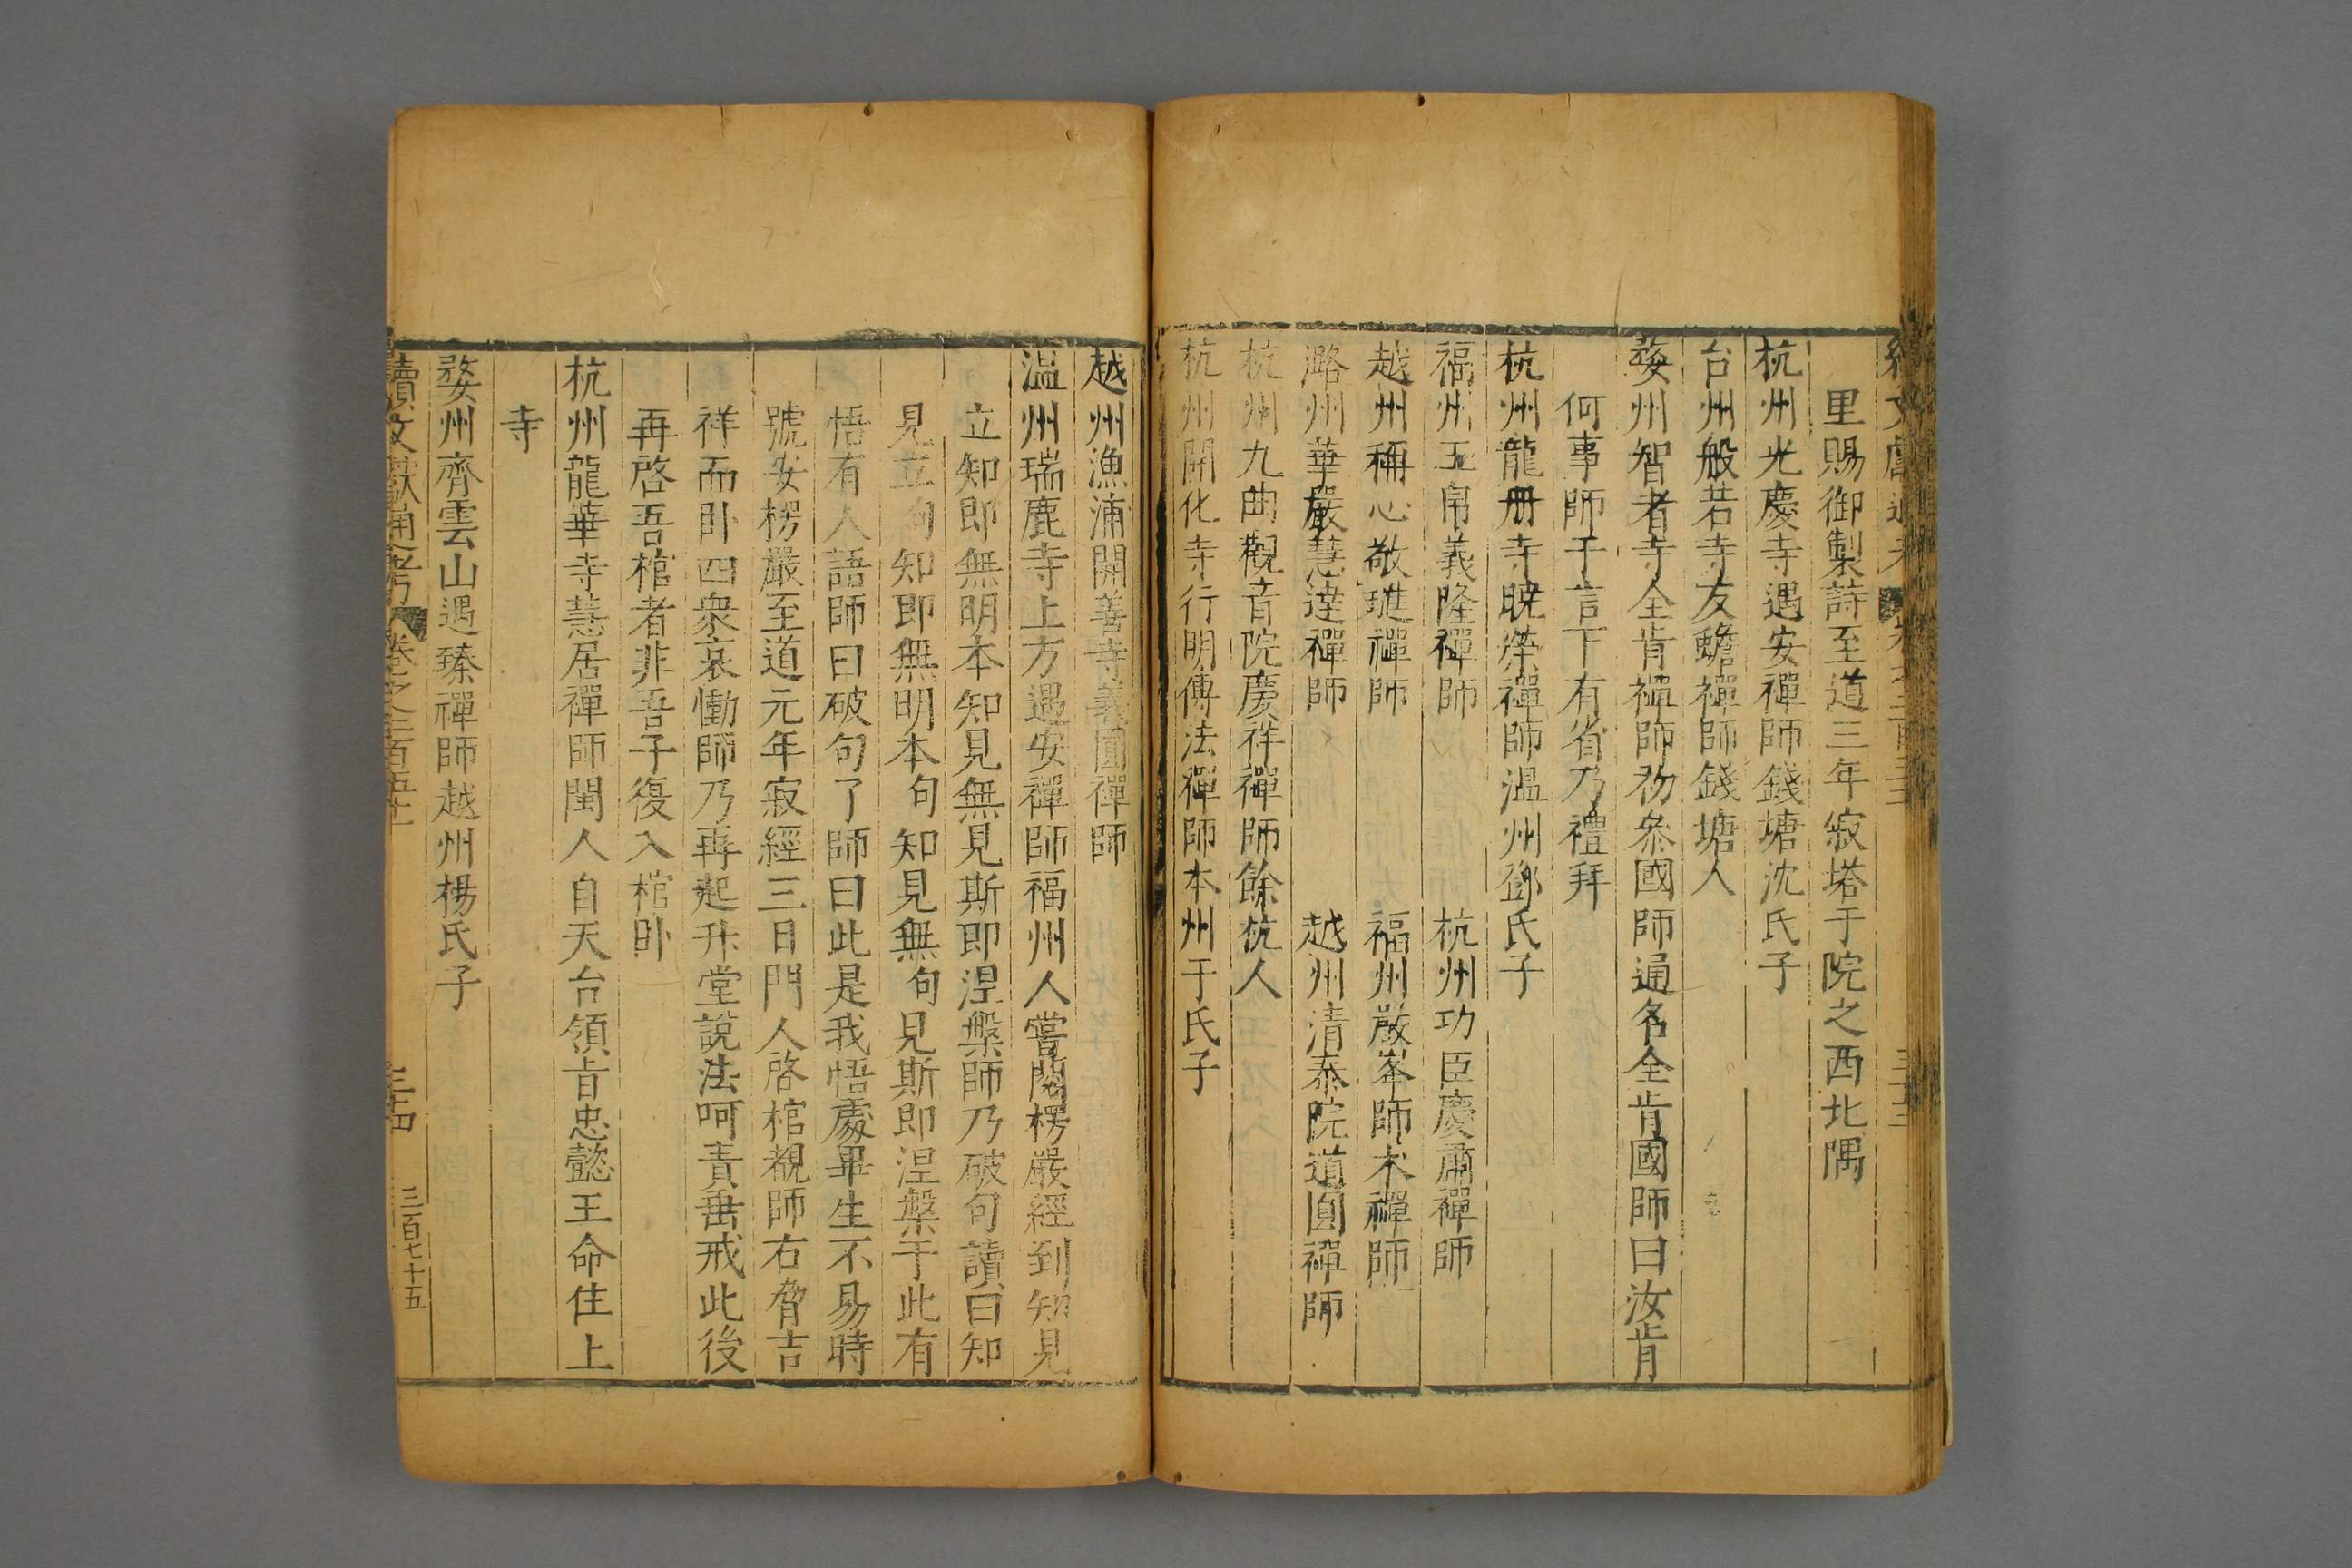 里賜御製詩至道三年寂塔于院之西北隅
杭州光慶寺遇安禪師錢塘沈氏子
台州般若寺友蟾禪師錢塘人
婺州智者寺全肯禪師初叅國師通名全肯國師曰汝肯
何事師于言下有省乃禮拜
杭州龍册寺曉榮禪師温州鄧氏子
福州玉 義隆禪師 杭州功臣慶肅禪師
越州稱心敬璡禪師 福州嚴峯師术禪師
潞州華嚴慧達禪師 越州清泰院道圓禪師
杭州九曲觀音院慶祥禪師餘杭人
杭州開化寺行明傳法禪師本州于氏子
越州漁浦開善寺義圓禪師
温州瑞鹿寺上方遇安禪師福州人嘗閱楞嚴經到知見
立知即無明本知見無見斯即涅槃師乃破句讀曰知
見立句知即無明本句知見無句見斯即涅槃于此有
悟有人語師曰破句了師曰此是我悟處畢生不易時
號安楞嚴至道元年寂經三日門人啓棺覩師右脅吉
祥而卧四衆哀慟師乃再起升堂說法呵責垂戒此後
再啓吾棺者非吾子復入棺卧
杭州龍華寺慧居禪師閩人自天台領旨忠懿王命住上
寺
婺州齊雲山遇臻禪師越州楊氏子
續文獻通考 卷之二百五十
三十四 三百七十五